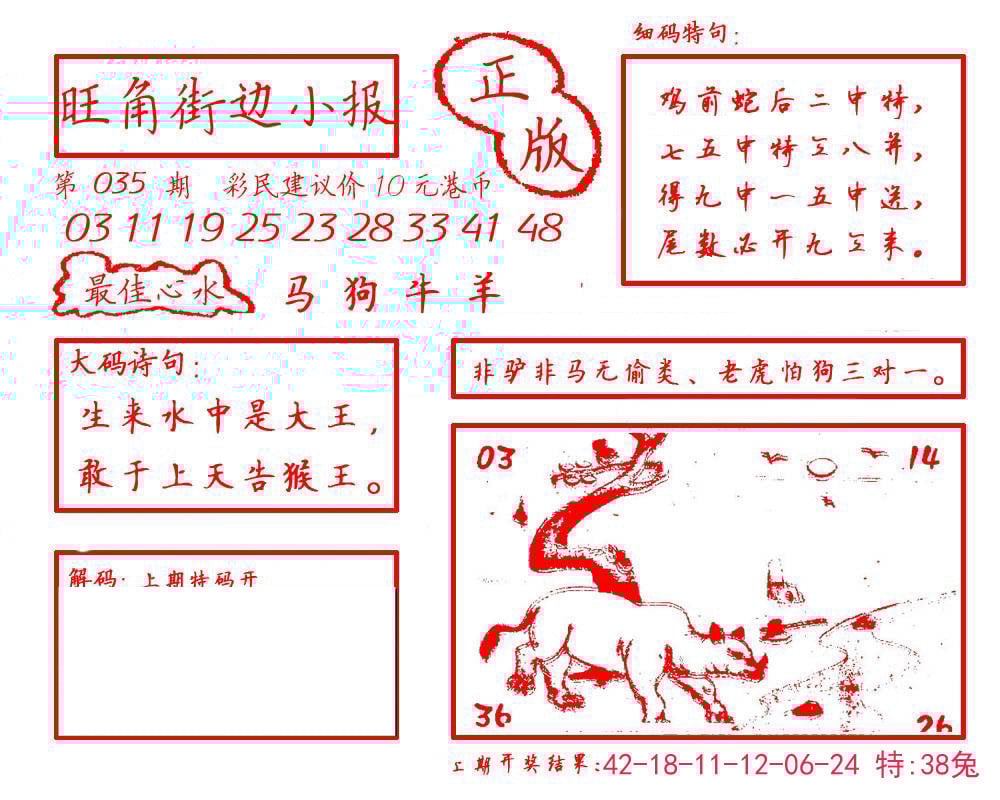 旺角街边小报
正版
第 035 期 彩民建议价 10 元港币
03 11 19 25 23 28 33 41 48
最佳心水 马 狗 牛 羊
细码特句：
鸡前蛇后二中特，
七五中特三八开，
得九中一五中送，
尾数必开九三来。
大码诗句：
生来水中是大王，
敢于上天告猴王。
非驴非马无偷类、老虎怕狗三对一。
03
14
36
26
解码· 上期特码开
上期开奖结果:42-18-11-12-06-24 特:38兔